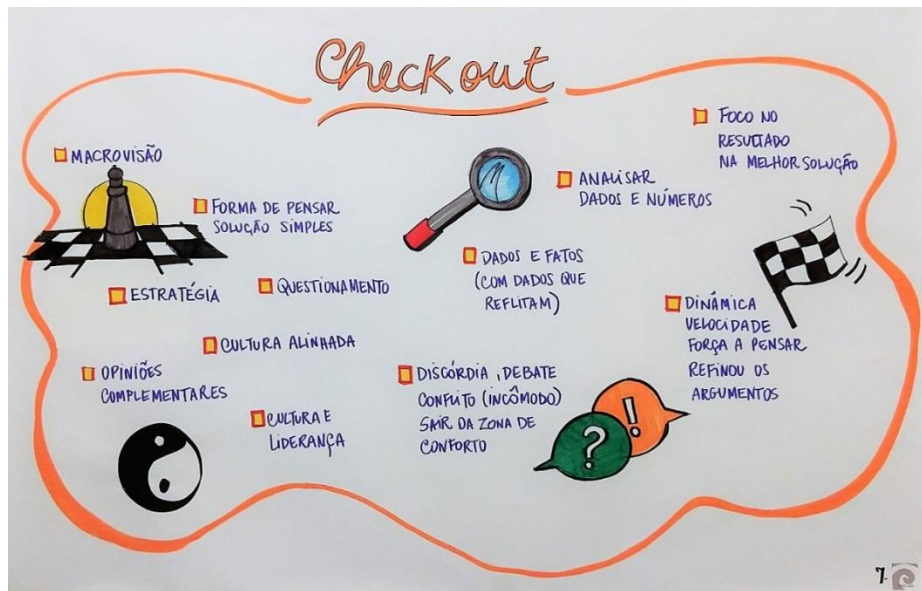 Check out
MACROVISÃO
FORMA DE PENSAR
SOLUÇÃO SIMPLES
ESTRATÉGIA
QUESTIONAMENTO
CULTURA ALINHADA
OPINIÕES
COMPLEMENTARES
CULTURA E
LIDERANÇA
ANALISAR
DADOS E NÚMEROS
DADOS E FATOS
(COM DADOS QUE
REFLITAM)
DISCÓRDIA, DEBATE
CONFLITO (INCÔMODO)
SAIR DA ZONA DE
CONFORTO
?
!
FOCO NO
RESULTADO
NA MELHOR SOLUÇÃO
DINÂMICA
VELOCIDADE
FORÇA A PENSAR
REFINOU OS
ARGUMENTOS
7.